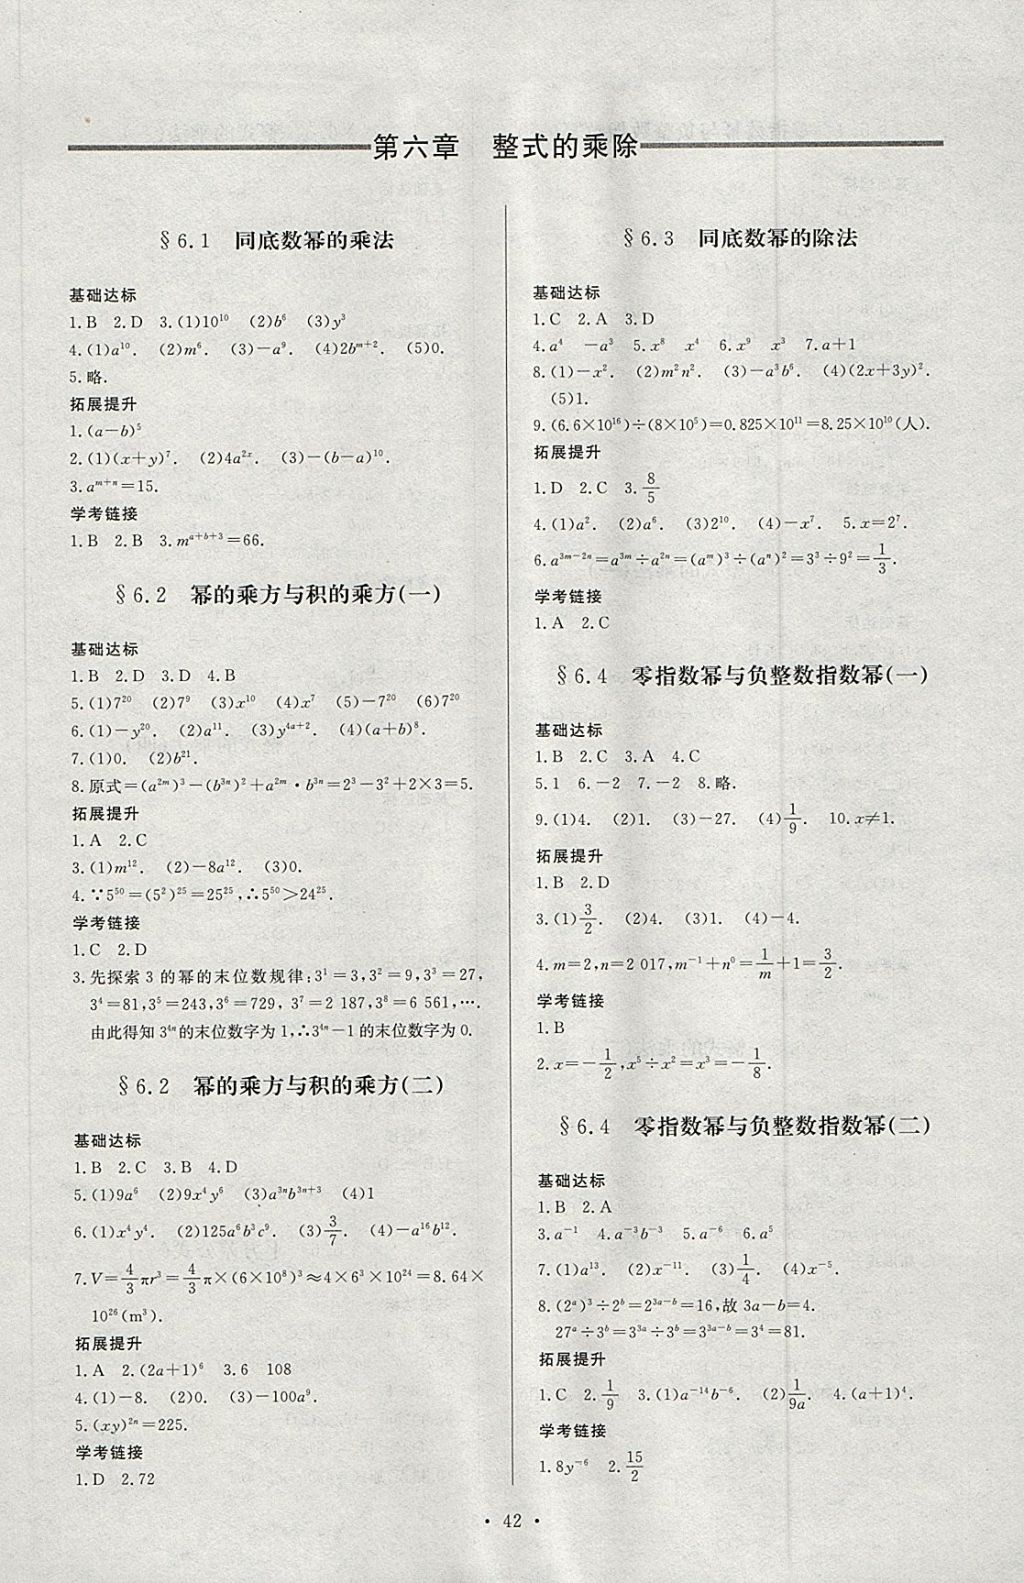 第六章　整式的乘除
§6.1　同底数幂的乘法
基础达标
1.B　2.D　3.(1)10¹⁰　(2)b⁶　(3)y³
4.(1)a¹⁰.　(2)m⁶.　(3)−a⁹.　(4)2bᵐ⁺².　(5)0.
5.略.
拓展提升
1.(a−b)⁵
2.(1)(x+y)⁷.　(2)4a²ˣ.　(3)−(b−a)¹⁰.
3.aᵐ⁺ⁿ=15.
学考链接
1.B　2.B　3.mᵃ⁺ᵇ⁺³=66.
§6.2　幂的乘方与积的乘方(一)
基础达标
1.B　2.D　3.D　4.B
5.(1)7²⁰　(2)7⁹　(3)x¹⁰　(4)x⁷　(5)−7²⁰　(6)7²⁰
6.(1)−y²⁰.　(2)a¹¹.　(3)y⁴ᵃ⁺².　(4)(a+b)⁸.
7.(1)0.　(2)b²¹.
8.原式=(a²ᵐ)³−(b³ⁿ)²+a²ᵐ·b³ⁿ=2³−3²+2×3=5.
拓展提升
1.A　2.C
3.(1)m¹².　(2)−8a¹².　(3)0.
4.∵5⁵⁰=(5²)²⁵=25²⁵,∴5⁵⁰>24²⁵.
学考链接
1.C　2.D
3.先探索3的幂的末位数规律:3¹=3,3²=9,3³=27,
3⁴=81,3⁵=243,3⁶=729, 3⁷=2 187,3⁸=6 561,….
由此得知3⁴ⁿ的末位数字为1,∴3⁴ⁿ−1的末位数字为0.
§6.2　幂的乘方与积的乘方(二)
基础达标
1.B　2.C　3.B　4.D
5.(1)9a⁶　(2)9x⁴y⁶　(3)a³ⁿb³ⁿ⁺³　(4)1
6.(1)x⁴y⁴.　(2)125a⁶b³c⁹.　(3)3/7.　(4)−a¹⁶b¹².
7.V=4/3πr³=4/3π×(6×10⁸)³≈4×6³×10²⁴=8.64×
10²⁶(m³).
拓展提升
1.A　2.(2a+1)⁶　3.6　108
4.(1)−8.　(2)0.　(3)−100a⁹.
5.(xy)²ⁿ=225.
学考链接
1.D　2.72
§6.3　同底数幂的除法
基础达标
1.C　2.A　3.D
4.a⁴　−a³　5.x⁸　x⁴　6.x⁹　x³　7.a+1
8.(1)−x².　(2)m²n².　(3)−a³b⁶.　(4)(2x+3y)².
(5)1.
9.(6.6×10¹⁶)÷(8×10⁵)=0.825×10¹¹=8.25×10¹⁰(人).
拓展提升
1.D　2.C　3.8/5
4.(1)a².　(2)a⁶.　(3)2¹⁰.　(4)−x⁷.　5.x=2⁷.
6.a³ᵐ⁻²ⁿ=a³ᵐ÷a²ⁿ=(aᵐ)³÷(aⁿ)²=3³÷9²=1/3.
学考链接
1.A　2.C
§6.4　零指数幂与负整数指数幂(一)
基础达标
1.B　2.C　3.A　4.C
5.1　6.−2　7.−2　8.略.
9.(1)4.　(2)1.　(3)−27.　(4)1/9.　10.x≠1.
拓展提升
1.B　2.D
3.(1)3/2.　(2)4.　(3)1.　(4)−4.
4.m=2,n=2 017,m⁻¹+n⁰=1/m+1=3/2.
学考链接
1.B
2.x=−1/2,x⁵÷x²=x³=−1/8.
§6.4　零指数幂与负整数指数幂(二)
基础达标
1.B　2.A
3.a⁻¹　4.a⁻³b⁻³　5.a⁻⁶　6.a⁵
7.(1)a¹³.　(2)x⁻¹¹.　(3)1/4.　(4)x⁻⁵.
8.(2ᵃ)³÷2ᵇ=2³ᵃ⁻ᵇ=16,故3a−b=4.
27ᵃ÷3ᵇ=3³ᵃ÷3ᵇ=3³ᵃ⁻ᵇ=3⁴=81.
拓展提升
1.C　2.1/9　3.(1)a⁻¹⁴b⁻⁶.　(2)1/9a.　4.(a+1)⁴.
学考链接
1.8y⁻⁶　2.15/2
· 42 ·